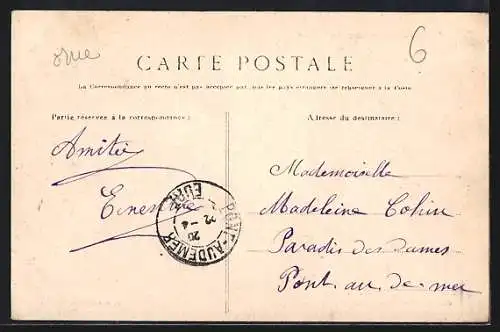 orne
6
CARTE POSTALE
La Correspondance au recto n'est pas acceptée par tous les pays étrangers (se renseigner à la Poste
Partie réservée à la correspondance :
Adresse du destinataire :
Amitié
Mademoiselle
Madeleine Cohin
Paradis des dames
Pont au de mer
PONT-AUDEMER
EURE